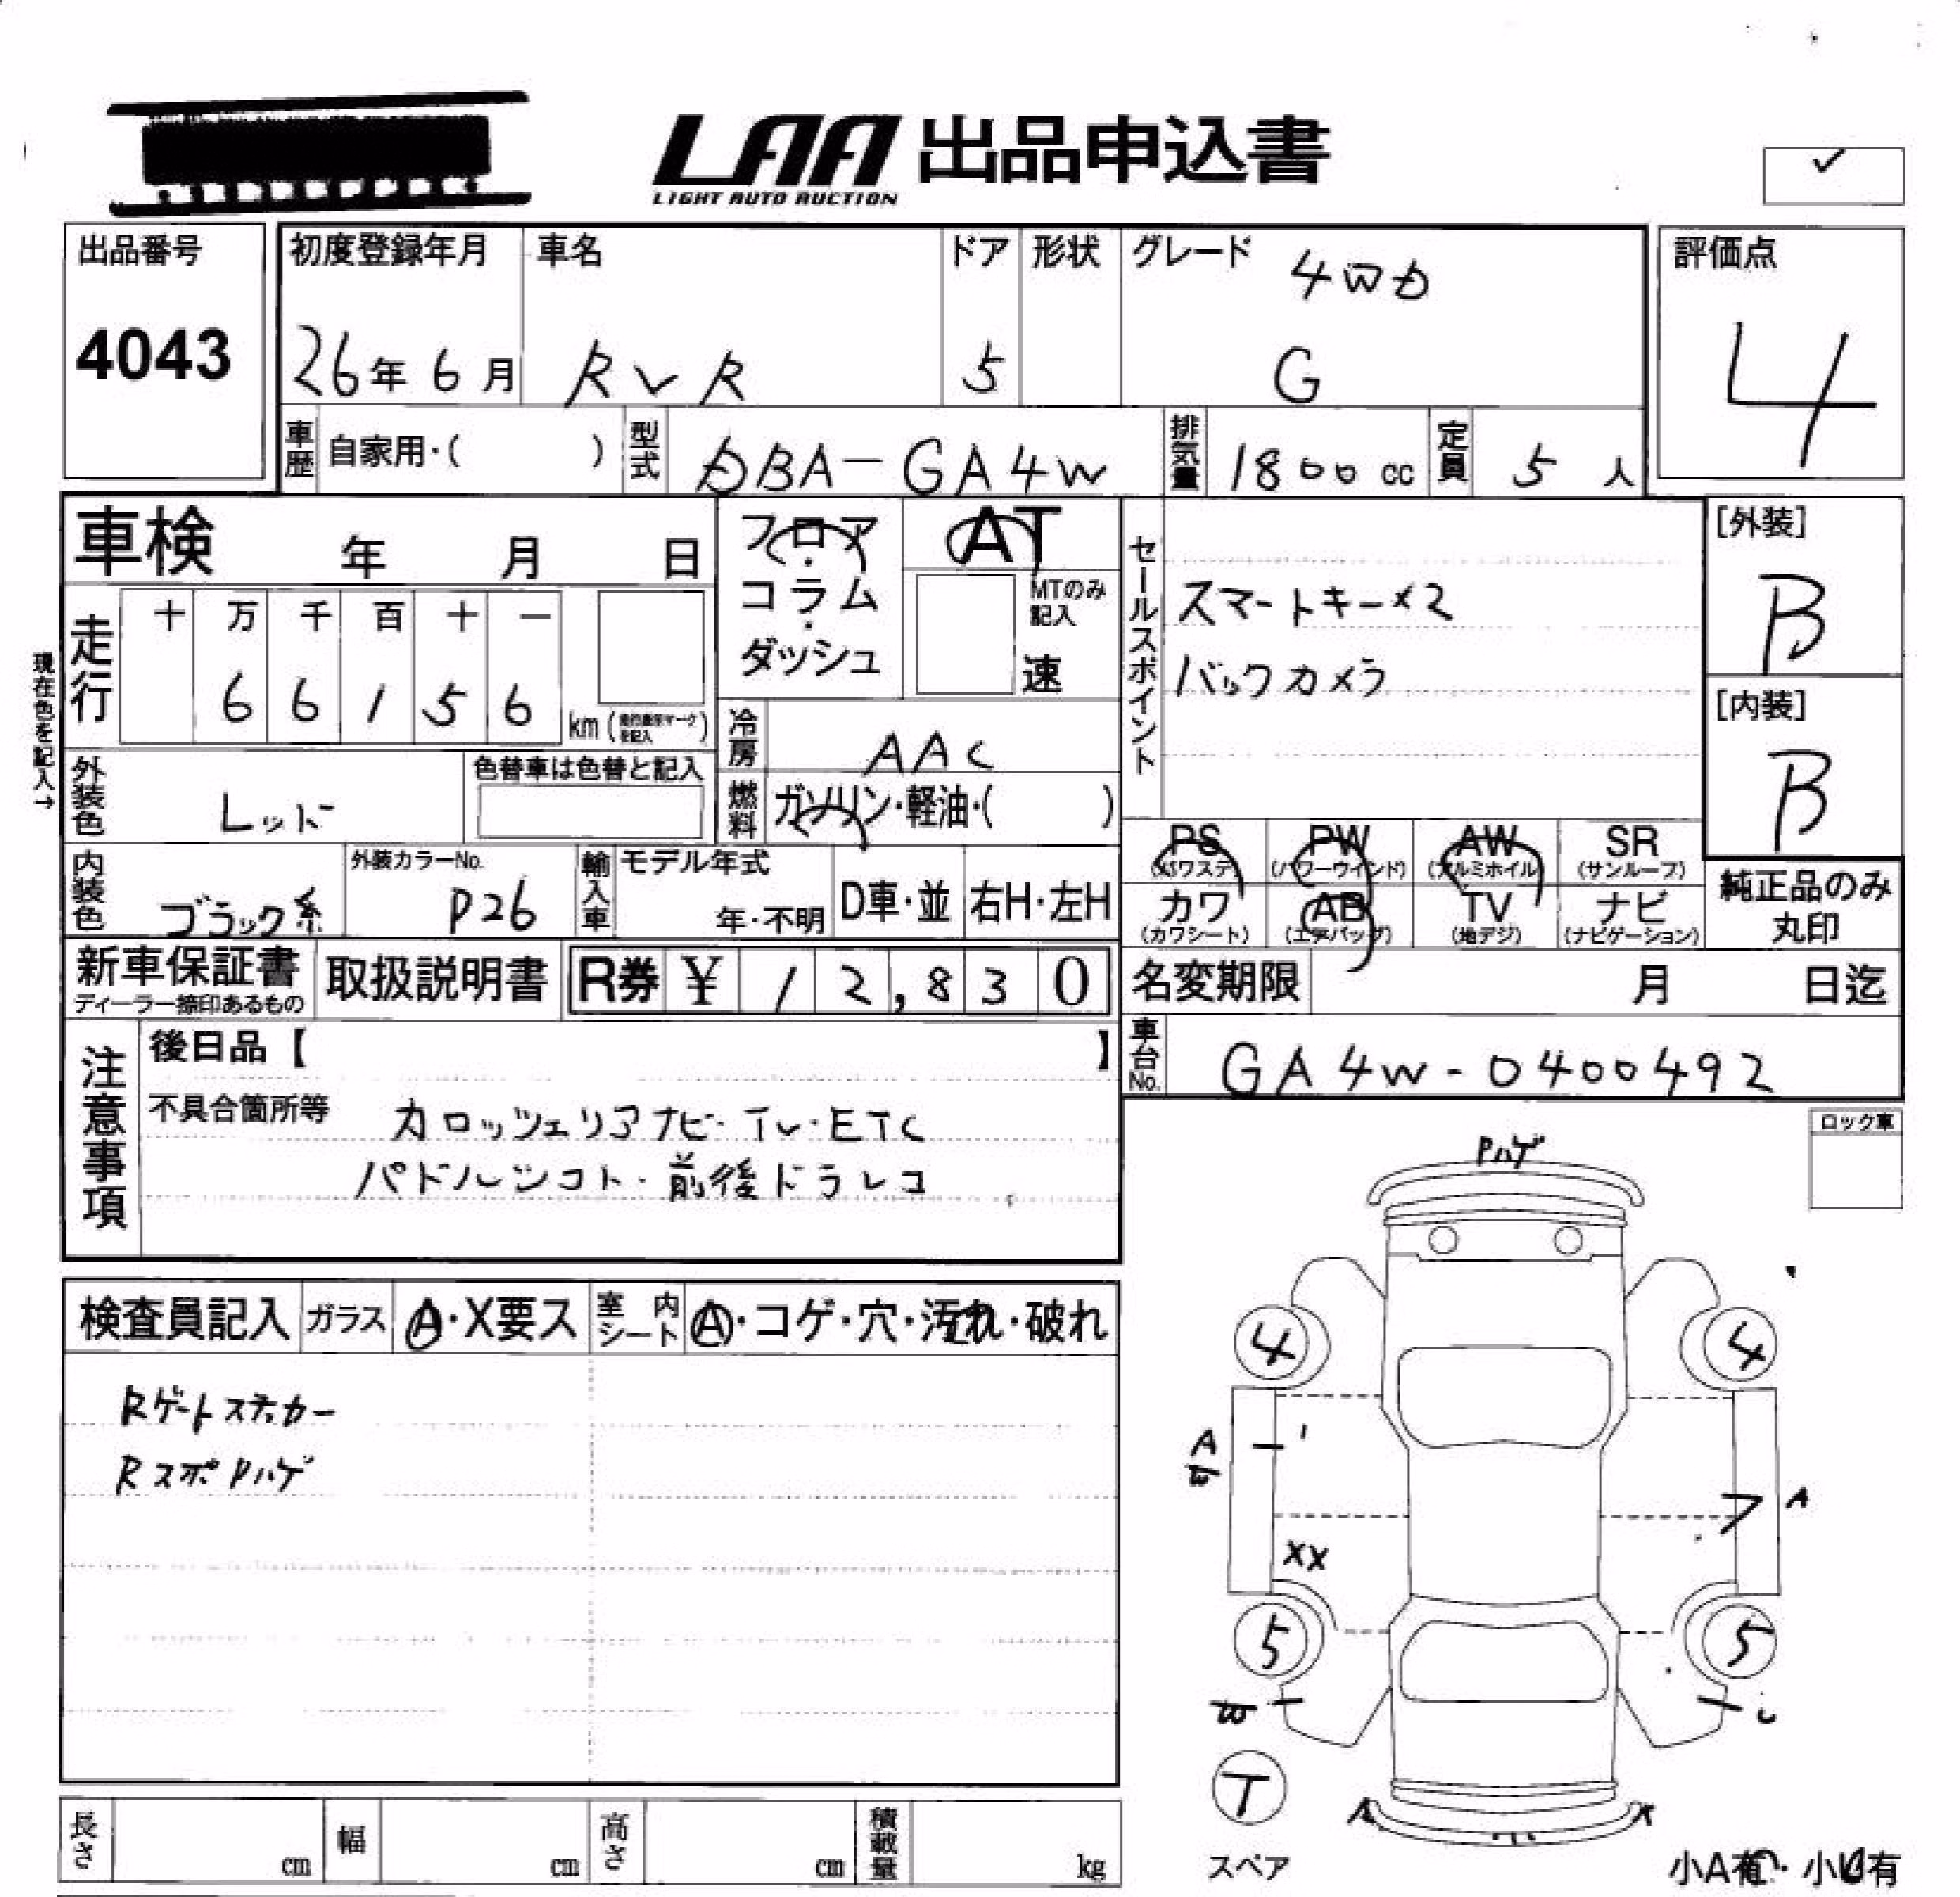 LAA 出品申込書
LIGHT AUTO AUCTION
✓
出品番号
4043
初度登録年月
26年6月
車名
RVR
ドア
5
形状
グレード
4WD
G
評価点
4
車歴 自家用・( )
型式 DBA-GA4W
排気量 1800cc
定員 5人
車検 年 月 日
フロア・コラム・ダッシュ
AT
MTのみ記入
速
現在色を記入→
走行
十 万 千 百 十 一
6 6 1 5 6
km
冷房 AAC
燃料 ガソリン・軽油・( )
外装色 レッド
色替車は色替と記入
内装色 ブラック系
外装カラーNo. P26
輸入車 モデル年式
年・不明
D車・並 右H・左H
セールスポイント
スマートキー×2
バックカメラ
[外装]
B
[内装]
B
PS (パワステ)
PW (パワーウインド)
AW (アルミホイル)
SR (サンルーフ)
カワ (カワシート)
AB (エアバッグ)
TV (地デジ)
ナビ (ナビゲーション)
純正品のみ丸印
新車保証書
ディーラー捺印あるもの
取扱説明書
R券 ¥ 12,830
名変期限 月 日迄
車台No. GA4W-0400492
注意事項
後日品【 】
不具合箇所等
カロッツェリアナビ・TV・ETC
パドルシフト・前後ドラレコ
ロック車
検査員記入
ガラス A・X要ス
室内シート A・コゲ・穴・汚れ・破れ
Rゲートステッカー
RスポPハゲ
Pハゲ
4
4
A
A
XX
5
5
T
スペア
小A有・小U有
長さ cm
幅 cm
高さ cm
積載量 kg